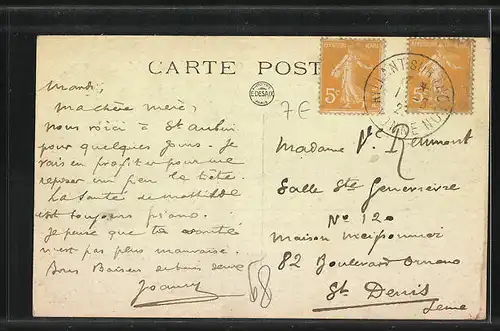 CARTE POST
EDESAIX
5c
5c
7E
Mardi,
Ma chère mère,
nous voici à St Aubin
pour quelques jours. Je
vais en profiter pour me
reposer un peu la tête.
La santé de Mathilde
est toujours piano.
Je pense que ta santé
n'est pas plus mauvaise.
Bons Baisers
68
Madame Vve
Salle Ste Geneviève
No 120
Maison Meissonnier
82 Boulevard Ornano
St Denis
Seine